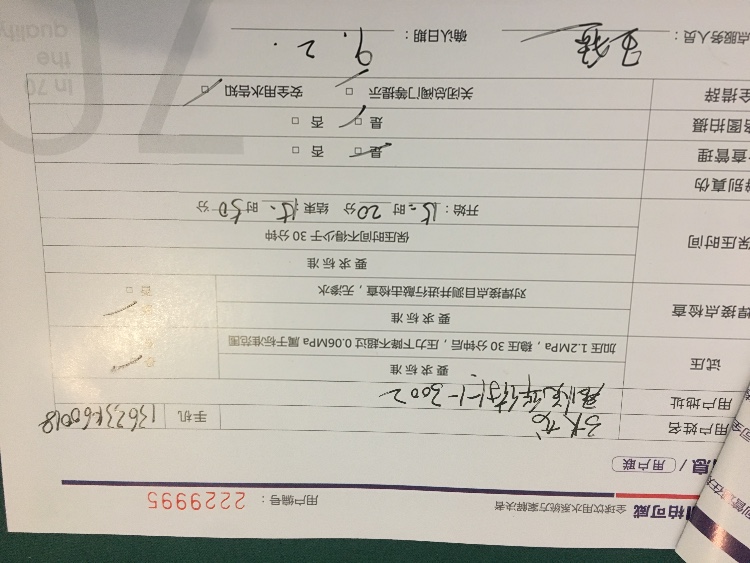 柏可威 全球饮用水系统方案解决者 用户编号：2229995
息 / 用户联
用户姓名 手机 13623660018
用户地址 1-1-3002
试压 要求标准
加压1.2MPa，稳压30分钟后，压力下降不超过0.06MPa属于标准范围
焊接点检查 要求标准
对焊接点目测并进行敲击检查，无渗水 否
保压时间 要求标准
保压时间不得少于30分钟
开始：15时20分 结束15时50分
辨别真伪
查管理 是 否
图拍摄 是 否
全措辞 关闭总阀门等提示 安全用水告知
点服务人员： 确认日期：9.2.
In 70
the
quality
70